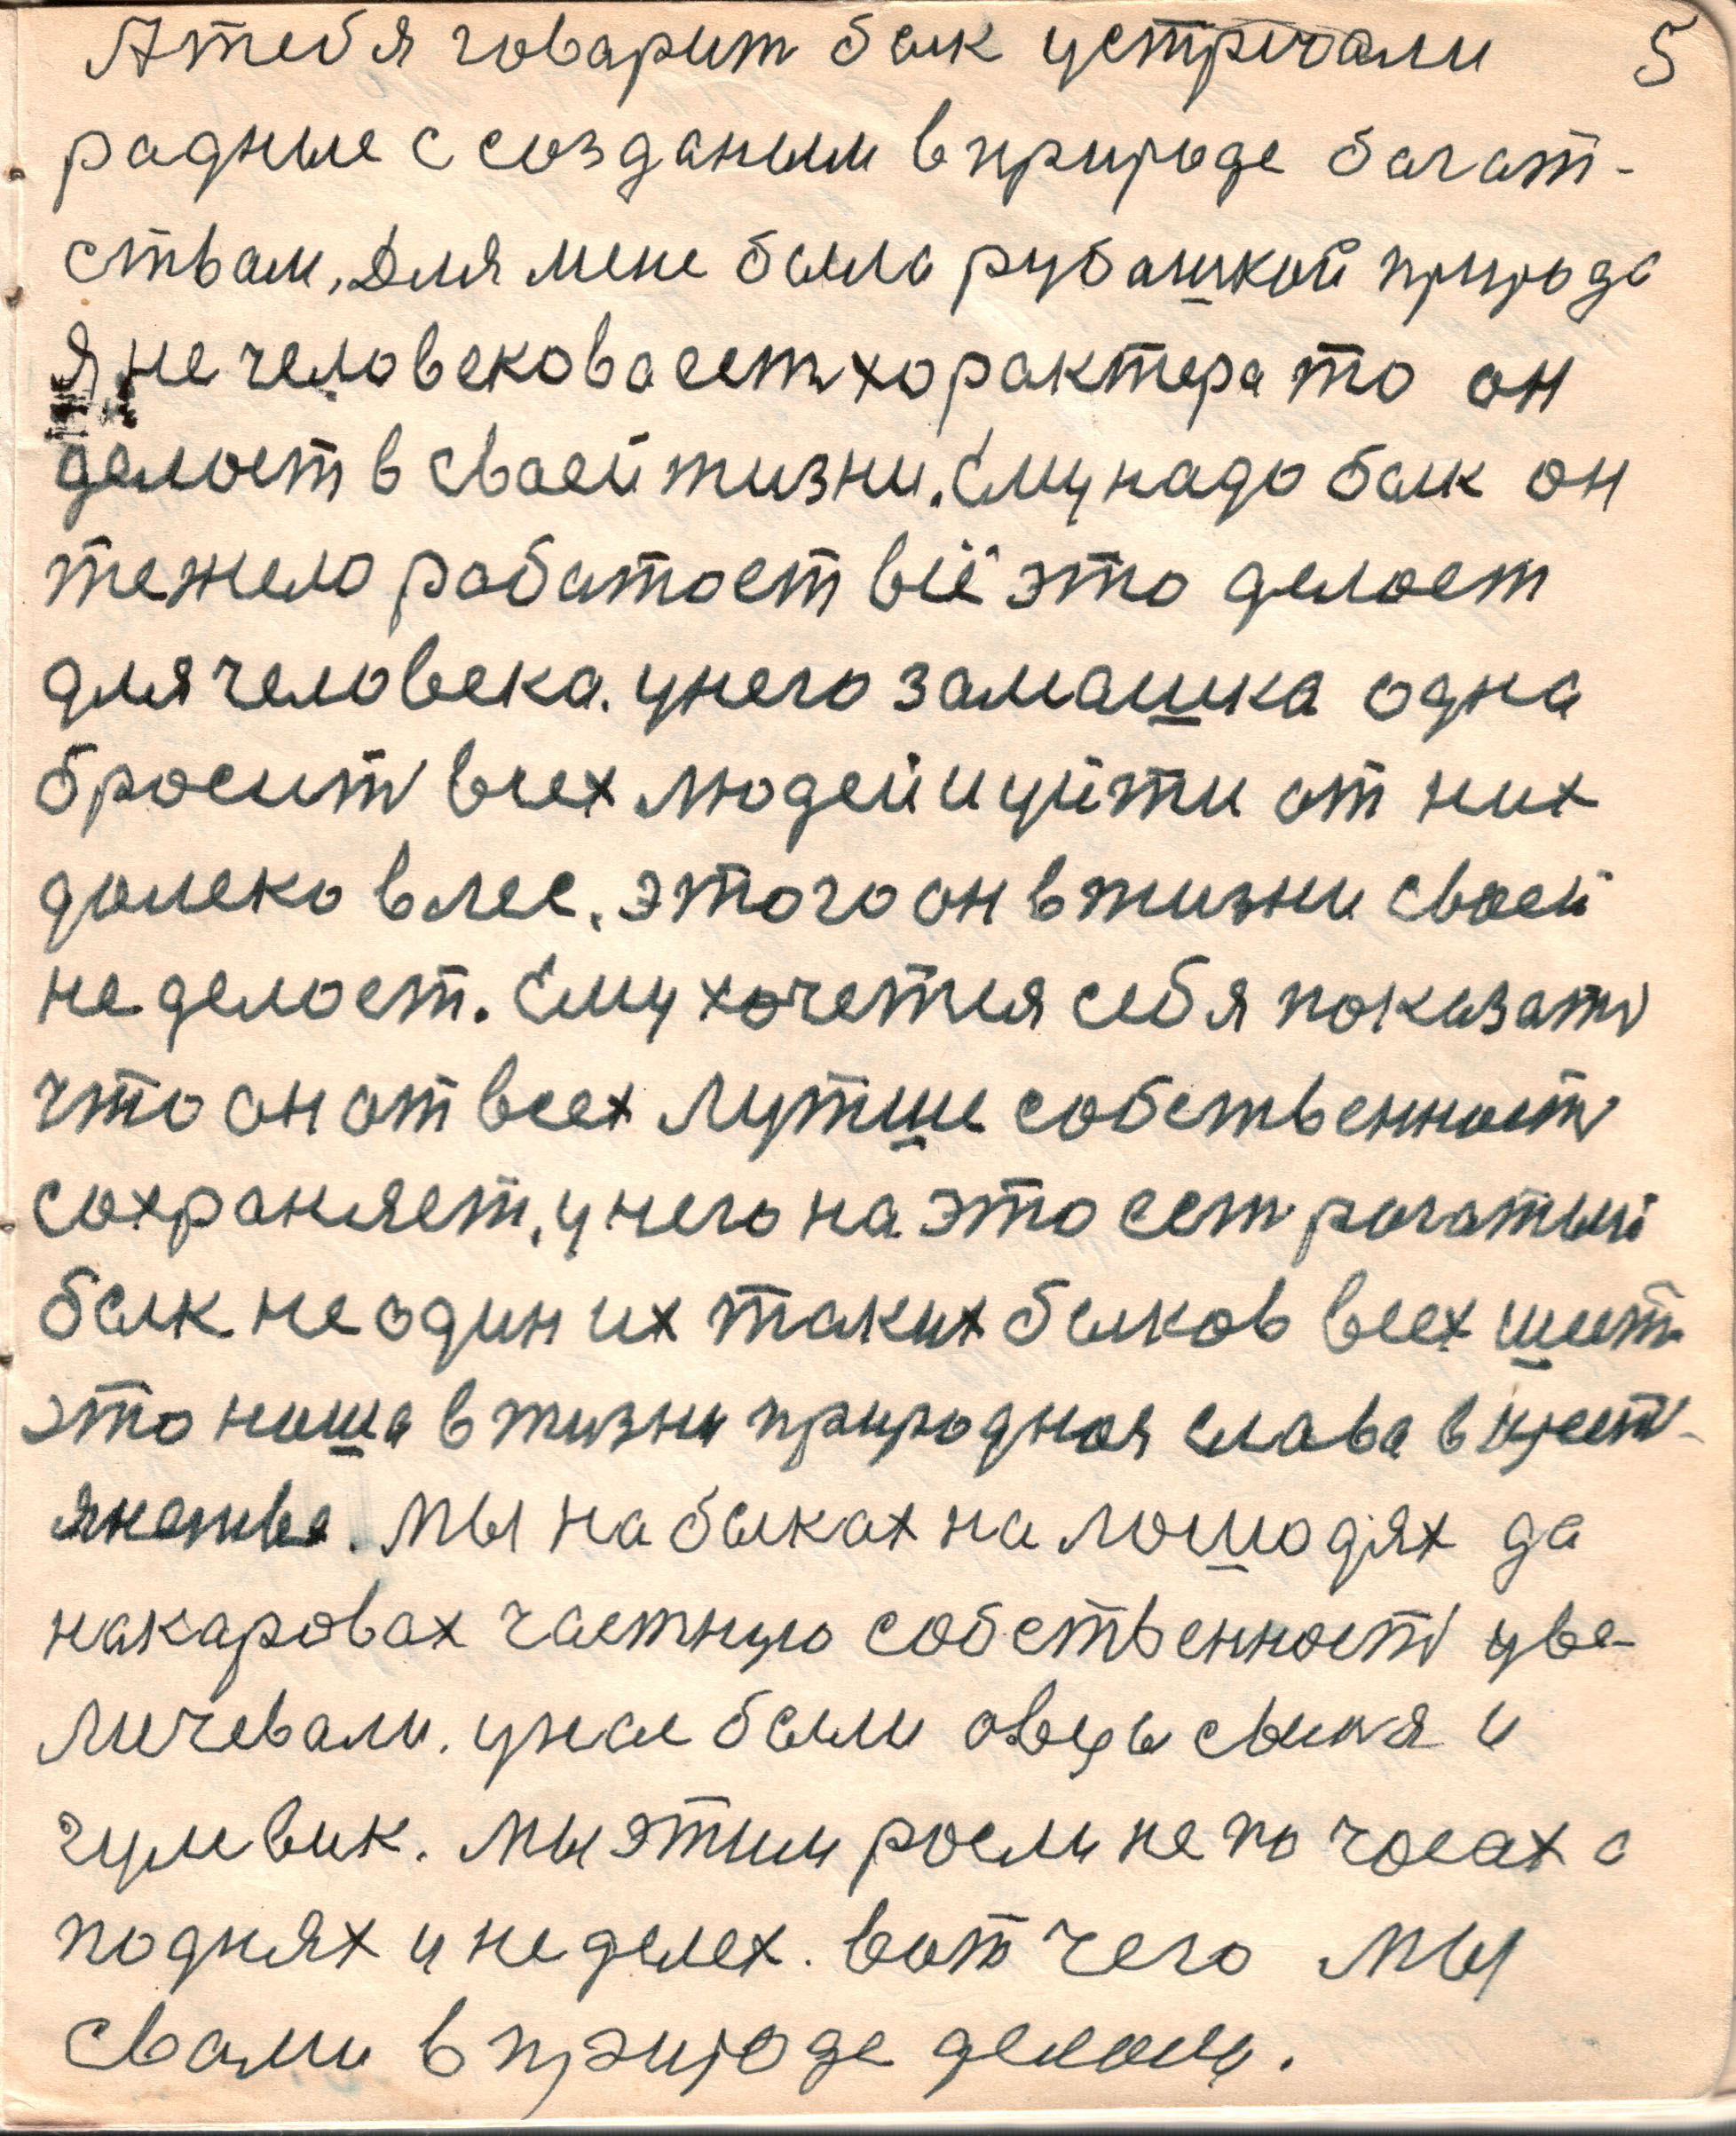 А тебя говарит бык устричали 5
радные с созданым в природе багат-
ствам, Для мене была рубашкой природа
я не человекова есть характера то он
делает в сваей жизни. Ему надо бык он
тежело работает всё это делает
для человека. у него замашка одна
бросить всех людей и уйти от них
далеко в лес, этого он в жизни сваей
не делает. Ему хочется себя показать
что он от всех Лутше собственность
сохраняет, у него на это есть рагатый
бык не один их таких быков всех шесть
это наша в жизни природная слава в крест-
янстве. Мы на быках на лошадях да
на каровах частную собственность уве-
личевали. у нас были овцы свиня и
гулевик. Мы этим расли не по часах а
по днях и неделех. вот чего мы
с вами в природе делаем.